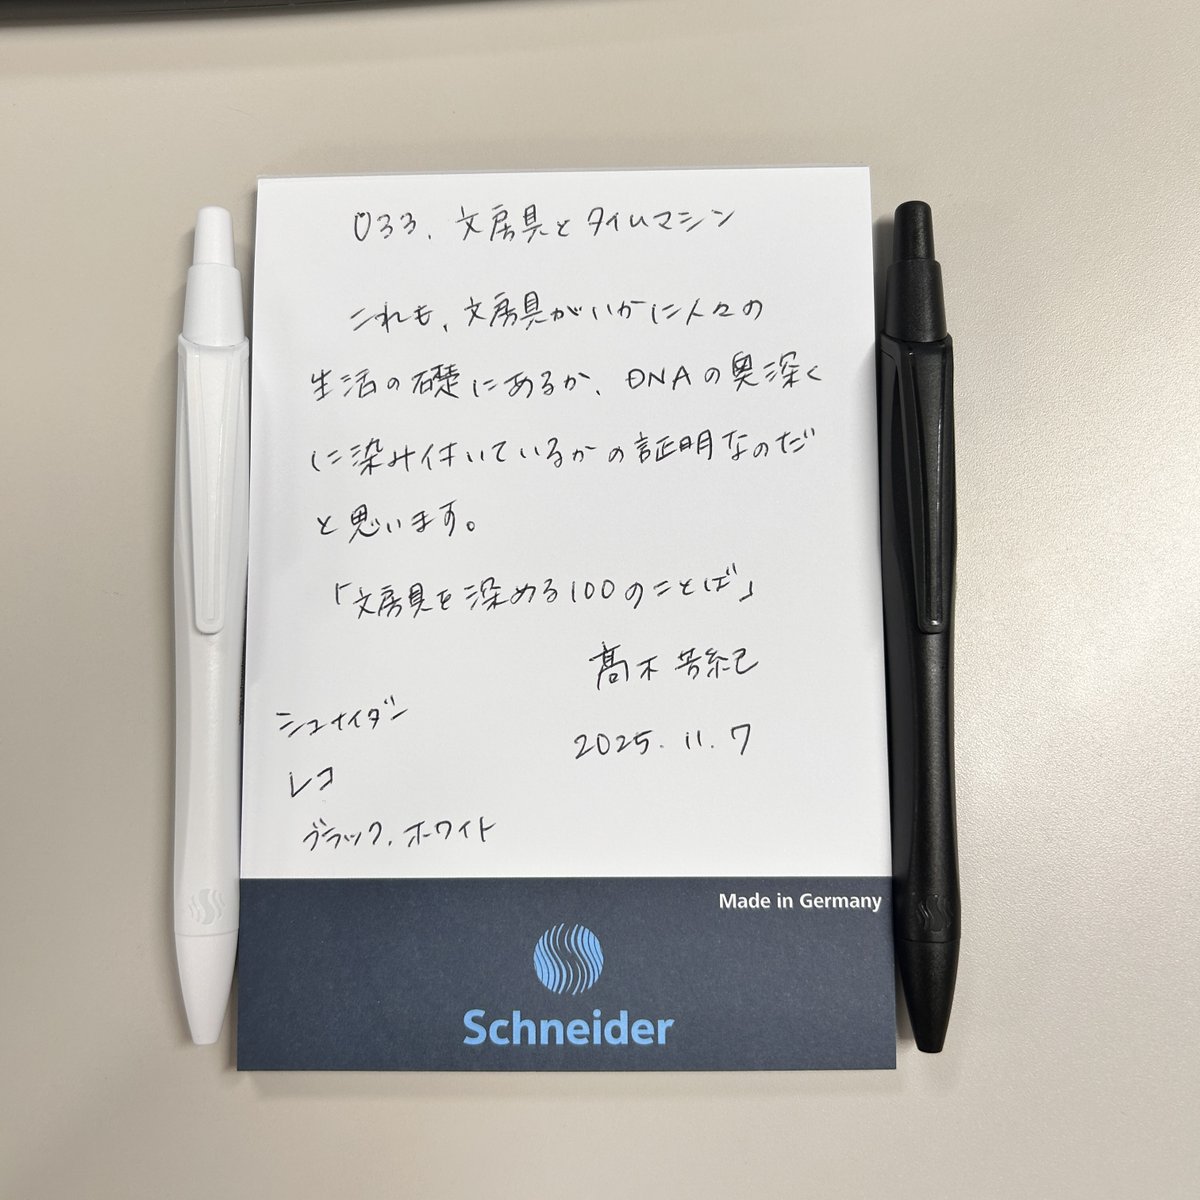 033. 文房具とタイムマシン
これも、文房具がいかに人々の
生活の礎にあるか、DNAの奥深く
に染み付いているかの証明なのだ
と思います。
「文房具を深める100のことば」
髙木芳紀
2025.11.7
シュナイダー
レコ
ブラック、ホワイト
Made in Germany
Schneider